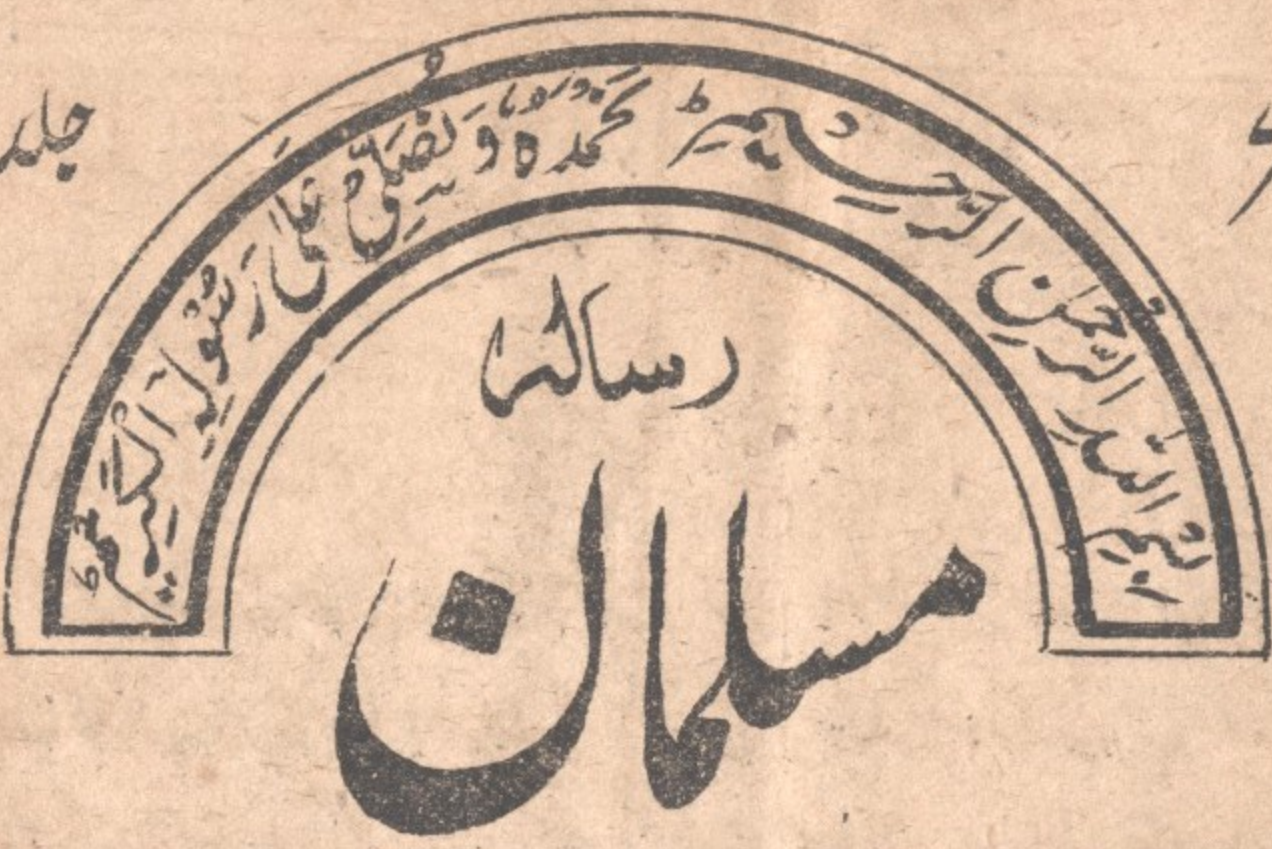 بسم اللہ الرحمن الرحیم نَحْمَدُہٗ وَنُصَلِّیْ عَلٰی رَسُوْلِہِ الْکَرِیْم
جلد
رسالہ
مسلمان